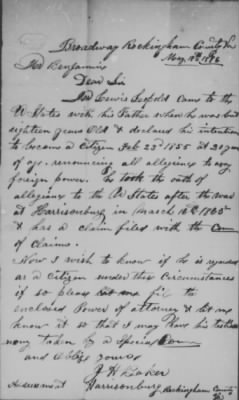 Broadway Rockingham County Va
May 18th 1876
Benjamin
Dear Sir
Lewis Leopold Came to the
U States with his Father when he was but
eighteen years Old & declared his intention
to become a Citizen Feb 23d 1855 at 20 years
of age. renouncing all allegiance to any
foreign power. He took the oath of
allegiance to the U States after the war
at Harrisonburg in March 16th 1865
& has a claim filed with the Com
of Claims.
Now I wish to know if he is regarded
as a Citizen under this Circumstances
if so please let me fil the
enclosed Power of attorney & let me
know it so that I may have his testi
mony taken by a Special Com
and oblige yours
J H Baker
Answer at Harrisonburg, Rockingham County
Va